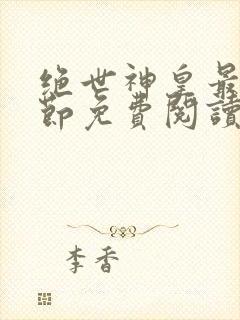 绝世神皇最
節免費閱讀
李香